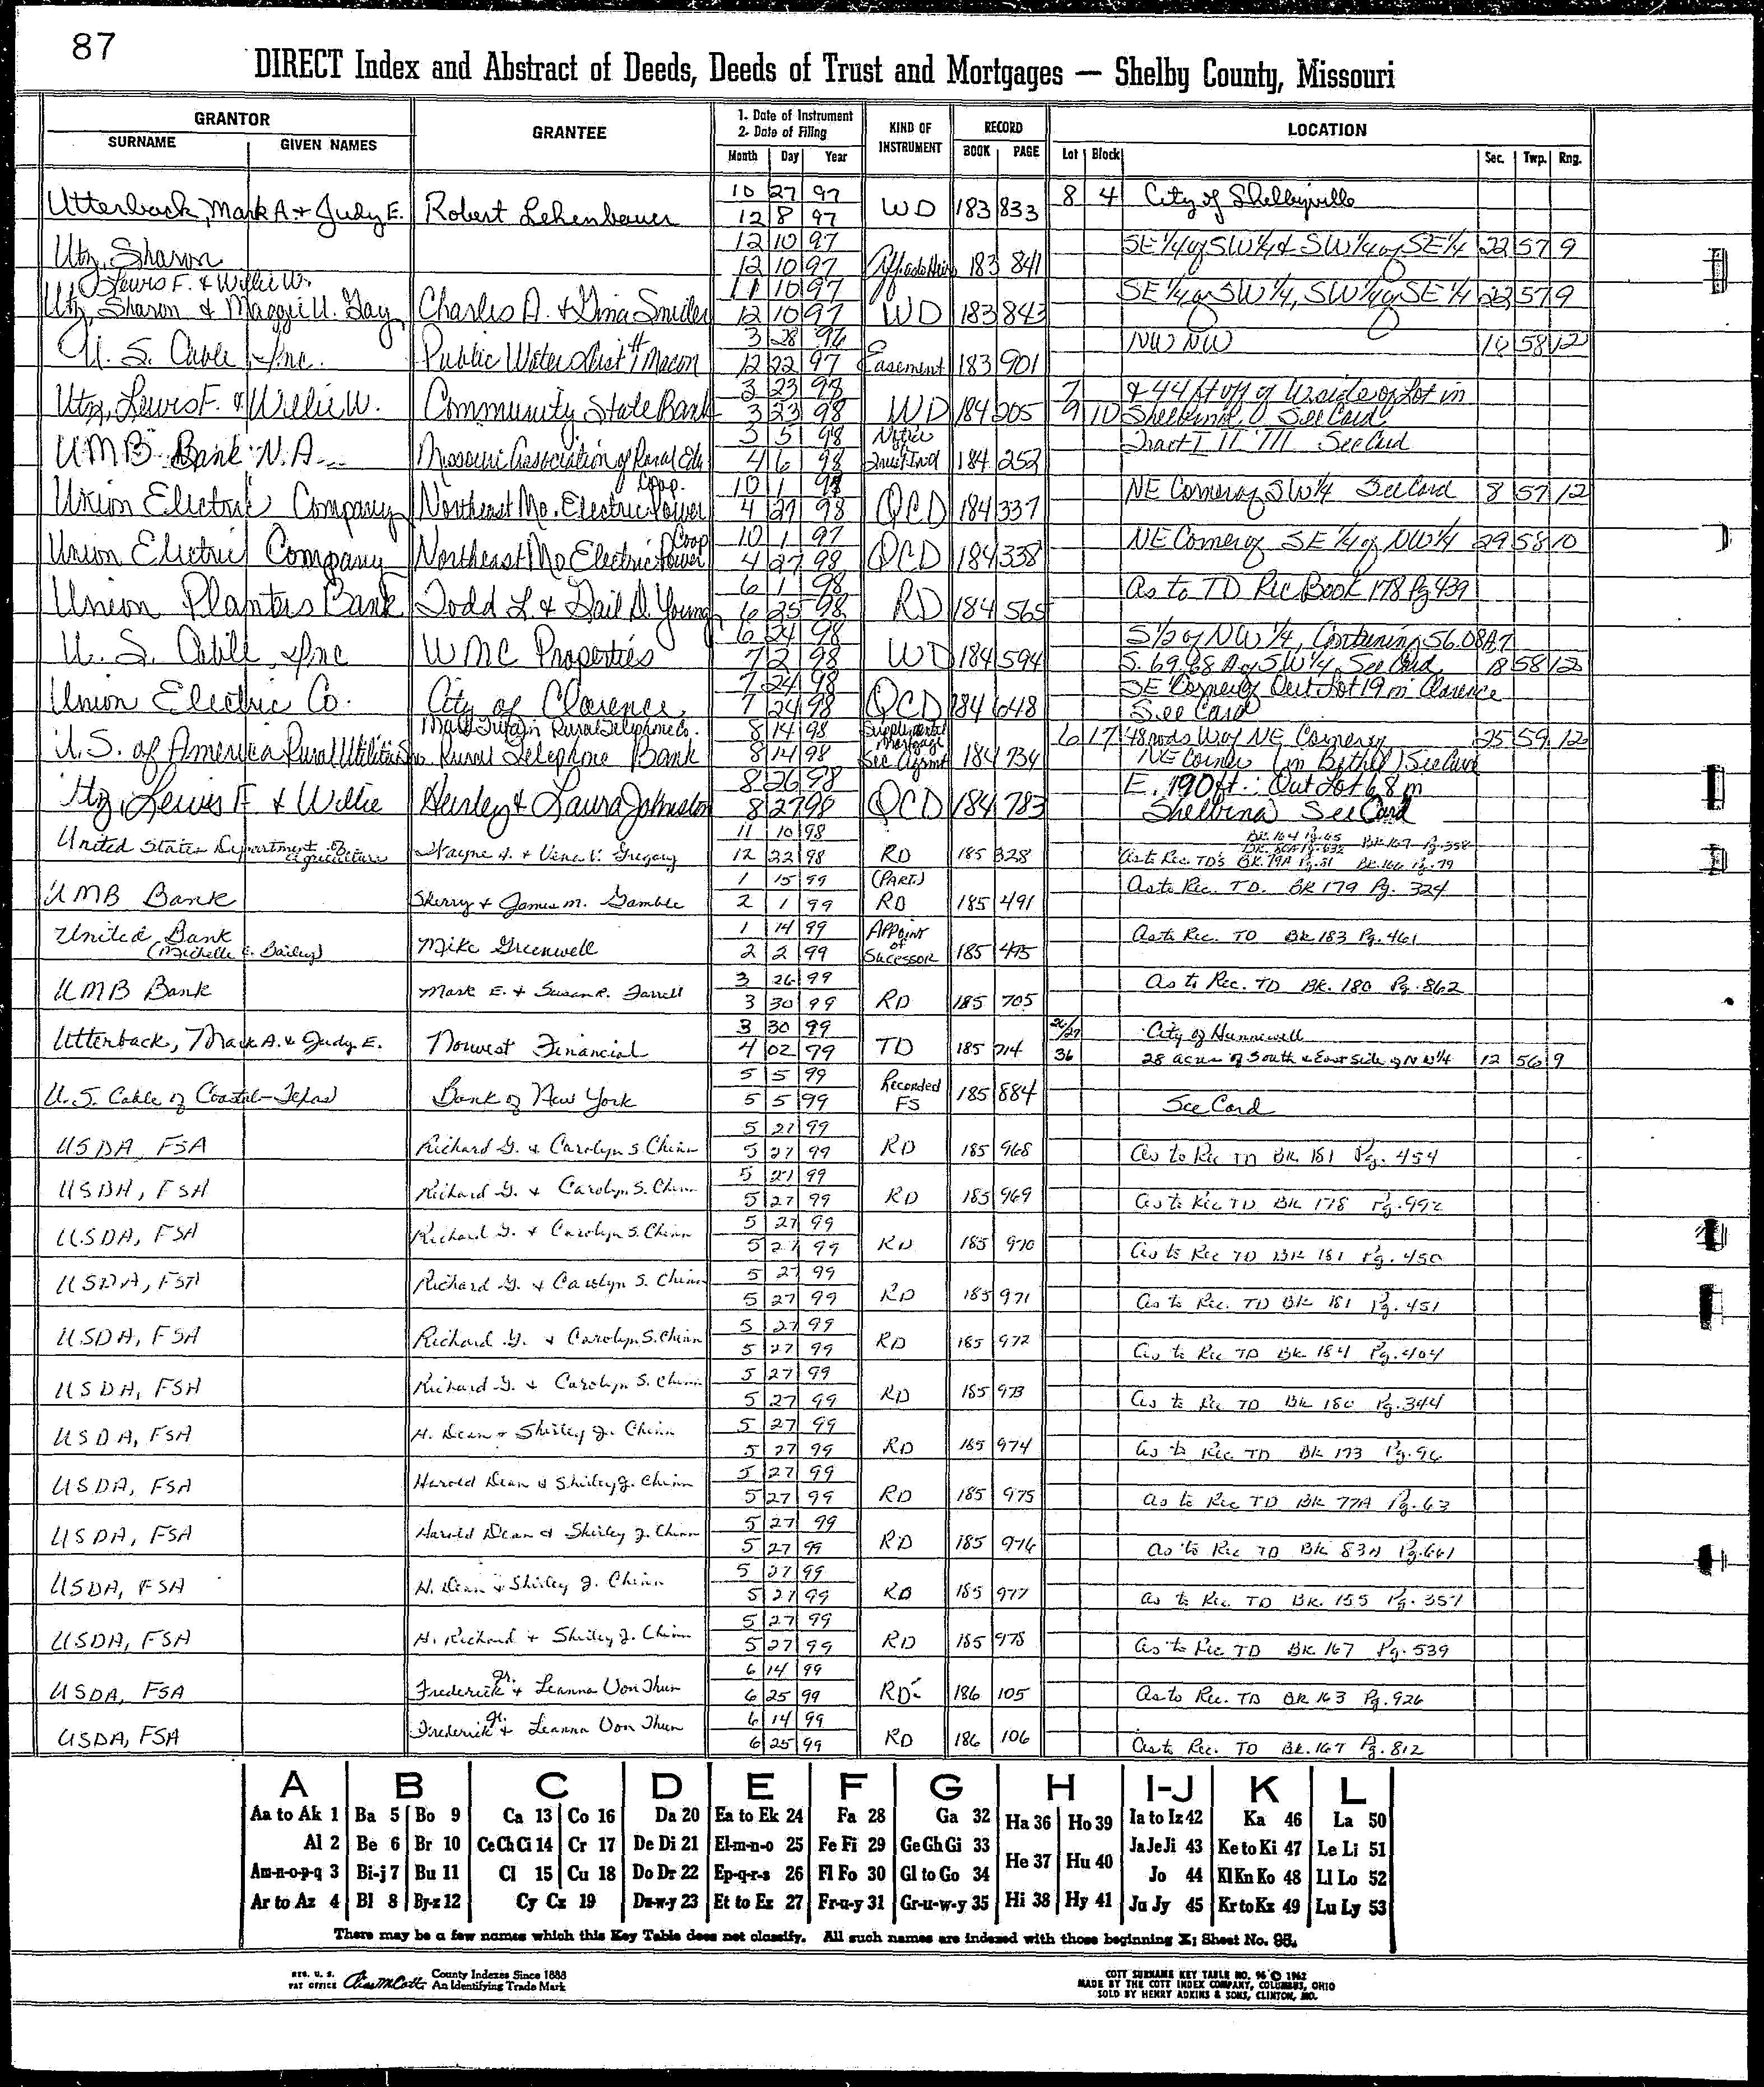 87
DIRECT Index and Abstract of Deeds, Deeds of Trust and Mortgages — Shelby County, Missouri
GRANTOR GRANTEE 1. Date of Instrument 2. Date of Filing KIND OF INSTRUMENT RECORD LOCATION
SURNAME GIVEN NAMES Month Day Year BOOK PAGE Lot Block Sec. Twp. Rng.
10 27 97 8 4 City of Shelbyville
Utterback, Mark A. + Judy E. Robert Lehenbauer 12 8 97 WD 183 833
12 10 97 SE 1/4 of SW 1/4 & SW 1/4 of SE 1/4 22 57 9
Utz, Sharon 12 10 97 183 841
Lewis F. & Willie W. 11 10 97 SE 1/4 of SW 1/4, SW 1/4 of SE 1/4 22 57 9
Utz, Sharon & Maggie U. Gay Charles A. & Gina Smiley 12 10 97 WD 183 843
3 28 96 NW NW 58 12
U. S. Cable Inc. Public Water Dist #1 Macon 12 22 97 Easement 183 901
3 23 98 7 & 44 ft off of W side of Lot in
Utz, Lewis F. & Willie W. Community State Bank 3 23 98 WD 184 205 9 10 Shelbina See Card
3 5 98 Notice Tract I II III See Card
UMB Bank N.A. Missouri Association of Rural Edu 4 6 98 Trust Ind 184 252
Coop. 10 1 NE Corner of SW 1/4 See Card 8 57 12
Union Electric Company Northeast Mo. Electric Power 4 27 98 QCD 184 337
Coop 10 1 97 NE Corner of SE 1/4 of NW 1/4 29 58 10
Union Electric Company Northeast Mo Electric Power 4 27 98 QCD 184 338
6 1 98 As to TD Rec Book 178 Pg 439
Union Planters Bank Todd L. & Gail D. Young 6 25 98 RD 184 565
6 24 98 S 1/2 of NW 1/4, Containing 56.08 A
U. S. Cable, Inc WMC Properties 7 2 98 WD 184 594 S. 69.68 A of SW 1/4 See Card 18 58 12
7 24 98 SE Corner of Out Lot 19 in Clarence
Union Electric Co. City of Clarence 7 24 98 QCD 184 648 See Card
Mark Twain Rural Telephone Co. 8 14 98 Supplemental Mortgage 6 17 48 rods W of NE Corner 25 59 12
U.S. of America Rural Utilities Rural Telephone Bank 8 14 98 Sec Agrmt 184 734 NE Corner (in Bethel) See Card
8 26 98 E. 190 ft. Out Lot 68 in
Utz, Lewis F. & Willie Henley & Laura Johnston 8 27 98 QCD 184 783 Shelbina See Card
11 10 98 BK 164 Pg. 65 BK 167 Pg. 358
United States Department of Agriculture Wayne A. & Vena V. Gregory 12 22 98 RD 185 328 As to Rec. TD's BK 79A Pg. 51 BK 166 Pg. 79
1 15 99 (PART.) As to Rec. TD. BK 179 Pg. 324
UMB Bank Sherry + James M. Gamble 2 1 99 RD 185 491
United Bank 1 14 99 Appoint of As to Rec. TD BK 183 Pg. 461
(Michelle E. Bailey) Mike Greenwell 2 2 99 Sucessor 185 495
3 26 99 As to Rec. TD BK. 180 Pg. 862
UMB Bank Mark E. + Susan R. Farrell 3 30 99 RD 185 705
3 30 99 26/27 City of Hunnewell
Utterback, Mark A. & Judy E. Norwest Financial 4 02 99 TD 185 714 36 28 acres of South & East Side of NW 1/4 12 56 9
5 5 99 Recorded
U.S. Cable of Coastal-Texas Bank of New York 5 5 99 FS 185 884 See Card
5 27 99
USDA, FSA Richard G. + Carolyn S. Chinn 5 27 99 RD 185 968 As to Rec TD BK 181 Pg. 454
5 27 99
USDA, FSA Richard G. + Carolyn S. Chinn 5 27 99 RD 185 969 As to Rec TD BK 178 Pg. 992
5 27 99
USDA, FSA Richard G. + Carolyn S. Chinn 5 27 99 RD 185 970 As to Rec TD BK 181 Pg. 450
5 27 99
USDA, FSA Richard G. + Carolyn S. Chinn 5 27 99 RD 185 971 As to Rec. TD BK 181 Pg. 451
5 27 99
USDA, FSA Richard G. + Carolyn S. Chinn 5 27 99 RD 185 972 As to Rec TD BK 184 Pg. 404
5 27 99
USDA, FSA Richard G. + Carolyn S. Chinn 5 27 99 RD 185 973 As to Rec TD BK 180 Pg. 344
5 27 99
USDA, FSA H. Dean + Shirley J. Chinn 5 27 99 RD 185 974 As to Rec TD BK 173 Pg. 96
5 27 99
USDA, FSA Harold Dean & Shirley J. Chinn 5 27 99 RD 185 975 As to Rec TD BK 77A Pg. 63
5 27 99
USDA, FSA Harold Dean & Shirley J. Chinn 5 27 99 RD 185 976 As to Rec TD BK 83A Pg. 661
5 27 99
USDA, FSA H. Dean + Shirley J. Chinn 5 27 99 RD 185 977 As to Rec TD BK. 155 Pg. 357
5 27 99
USDA, FSA H. Richard + Shirley J. Chinn 5 27 99 RD 185 978 As to Rec TD BK 167 Pg. 539
6 14 99
USDA, FSA Frederick Jr. + Leanna Von Thun 6 25 99 RD 186 105 As to Rec. TD BK 163 Pg. 926
6 14 99
USDA, FSA Frederick Jr. + Leanna Von Thun 6 25 99 RD 186 106 As to Rec. TD BK. 167 Pg. 812
A B C D E F G H I-J K L
Aa to Ak 1 Ba 5 Bo 9 Ca 13 Co 16 Da 20 Ea to Ek 24 Fa 28 Ga 32 Ha 36 Ho 39 Ia to Iz 42 Ka 46 La 50
Al 2 Be 6 Br 10 Ce Ch Ci 14 Cr 17 De Di 21 El-m-n-o 25 Fe Fi 29 Ge Gh Gi 33 He 37 Hu 40 Ja Je Ji 43 Ke to Ki 47 Le Li 51
Am-n-o-p-q 3 Bi-j 7 Bu 11 Cl 15 Cu 18 Do Dr 22 Ep-q-r-s 26 Fl Fo 30 Gl to Go 34 Jo 44 Kl Kn Ko 48 Ll Lo 52
Ar to Az 4 Bl 8 By-z 12 Cy Cz 19 Du-w-y 23 Et to Ez 27 Fr-u-y 31 Gr-u-w-y 35 Hi 38 Hy 41 Ju Jy 45 Kr to Kz 49 Lu Ly 53
There may be a few names which this Key Table does not classify. All such names are indexed with those beginning X; Sheet No. 95.
REG. U. S. PAT OFFICE County Indexes Since 1888 An Identifying Trade Mark
COTT SURNAME KEY TABLE NO. 96 © 1962
MADE BY THE COTT INDEX COMPANY, COLUMBUS, OHIO
SOLD BY HENRY ADKINS & SONS, CLINTON, MO.